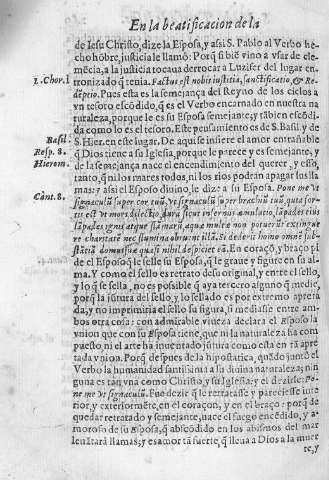 En la beatificacion de la
de Iesu Christo, dize la Esposa, y assi S. Pablo al Verbo he-
cho hōbre, justicia le llamò: Porq̃ si biē vino a vsar de cle-
mēcia, a la justicia tocaua derrocar a Luzifer del lugar en-
1. Chor. 1
tronizado q̃ tenia. Factus est nobis iustitia, sanctificatio, & Re-
dēptio. Pues esta es la semejança del Reyno de los cielos a
vn tesoro escōdido, q̃ es el Verbo encarnado en nuestra na
turaleza, porque le es su Esposa semejante, y tābien escōdi-
da como lo es el tesoro. Este pensamiento es de S. Basil. y de
Basil.
Resp. 2.
Hierom.
S. Hier. en este lugar. De aqui se infiere el amor entrañable
q̃ Dios tiene a su Iglesia, porque le parece y es semejante, y
de la semejança nace el encendimiento del querer, y esso,
tanto, q̃ ni los mares todos, ni los rios podràn apagar sus lla
Cāt. 8.
mas: y assi el Esposo diuino, le dize a su Esposa. Pone me vt
signaculū super cor tuū, vt signaculū super brachiū tuū, quia for-
tis est vt mors dilectio, dura sicut infernus æmulatio, lāpades eius
lāpades ignis atque flāmarū, aquæ multæ non potuerūt extingue
re charitatē nec flumina obruunt illā. Si dederit homo omnē sub-
stātiā domus suæ quasi nihil despiciet eā. En coraçõ, y braço pi
de el Esposo q̃ le selle su Esposa, q̃ le graue y figure en su al
ma. Y como el sello es retrato de su original, y entre el sello,
y lo q̃ se sella, no es possible q̃ aya tercero alguno q̃ medie,
porq̃ la jūtura del sello, y lo sellado es por extremo apreta
da, y no imprimiria el sello su figura, si mediasse entre am-
bos otra cosa: con admirable viueza declara el Esposo la
vnion que con su Esposa tiene, que ni la naturaleza ha com
puesto, ni el arte ha inuentado jūtura como esta en tā apre
tada vnion. Porq̃ despues de la hipostatica, quādo juntò el
Verbo la humanidad santissima a su diuina naturaleza; nin
guna es tan vna como Christo, y su Iglesia: y el dezirle: Po-
ne me vt signaculū. Fue dezir q̃ le retratasse y pareciesse inte
rior, y exteriormēte, en el coraçon, y en el braço: porq̃ de
quedar retratado y semejante, nace el fuego encendido, y a-
moroso de su Esposa, q̃ abscōdido en los abismos del mar
leuātarà llamas: y es amor tā fuerte, q̃ lleua a Dios a la muer
te, y